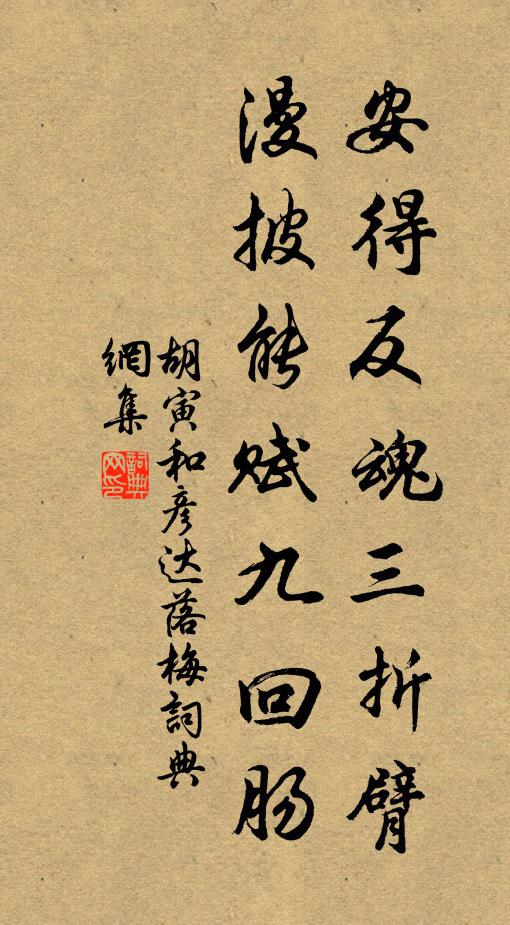 安得反魂三折臂
漫披能赋九回肠
胡寅和彦达落梅詞典
網集
詞典
网印